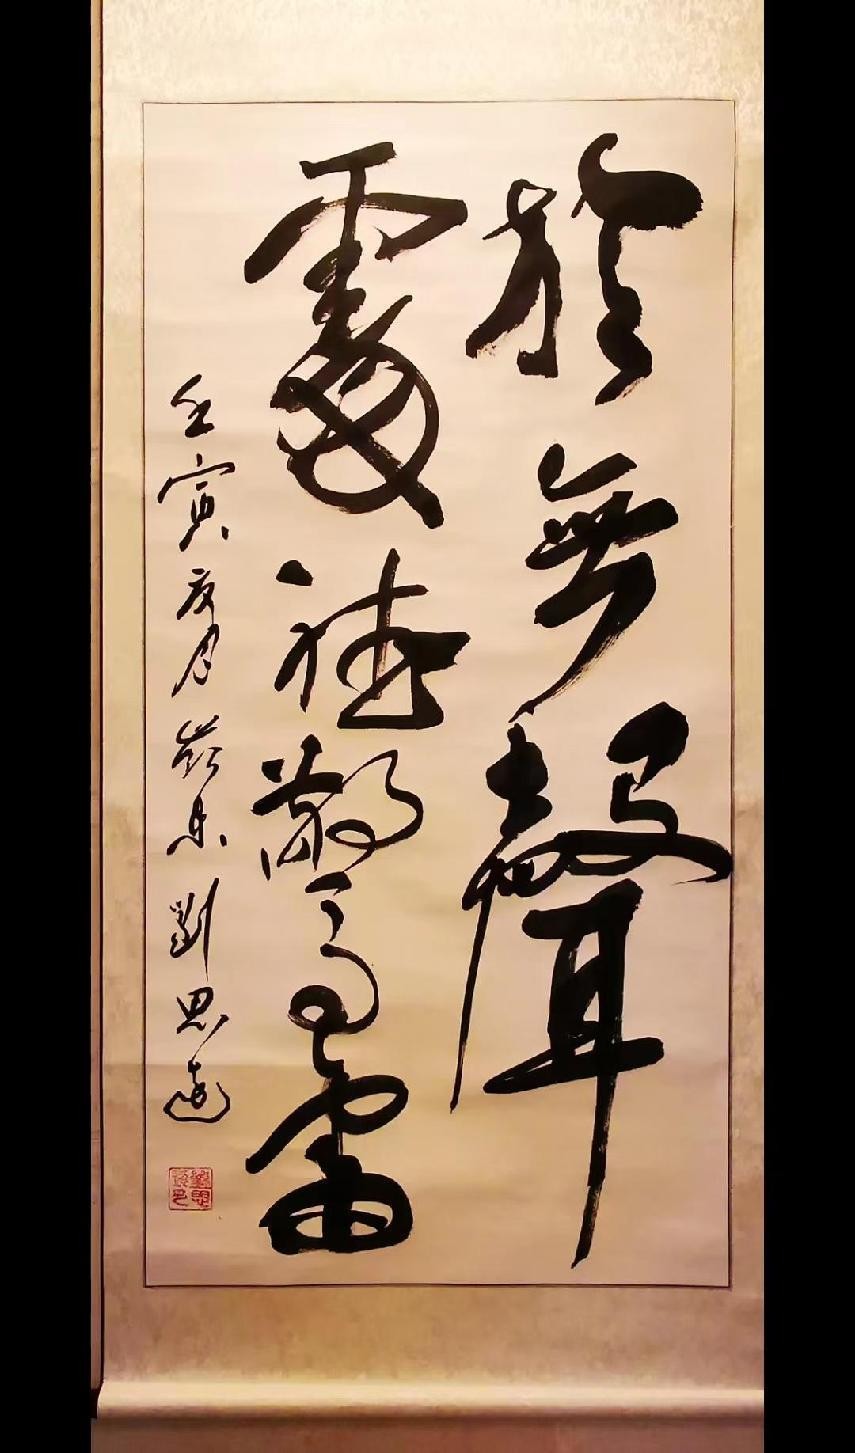 於無聲
處聽驚雷
壬寅夏月 劉思遠
劉思遠印